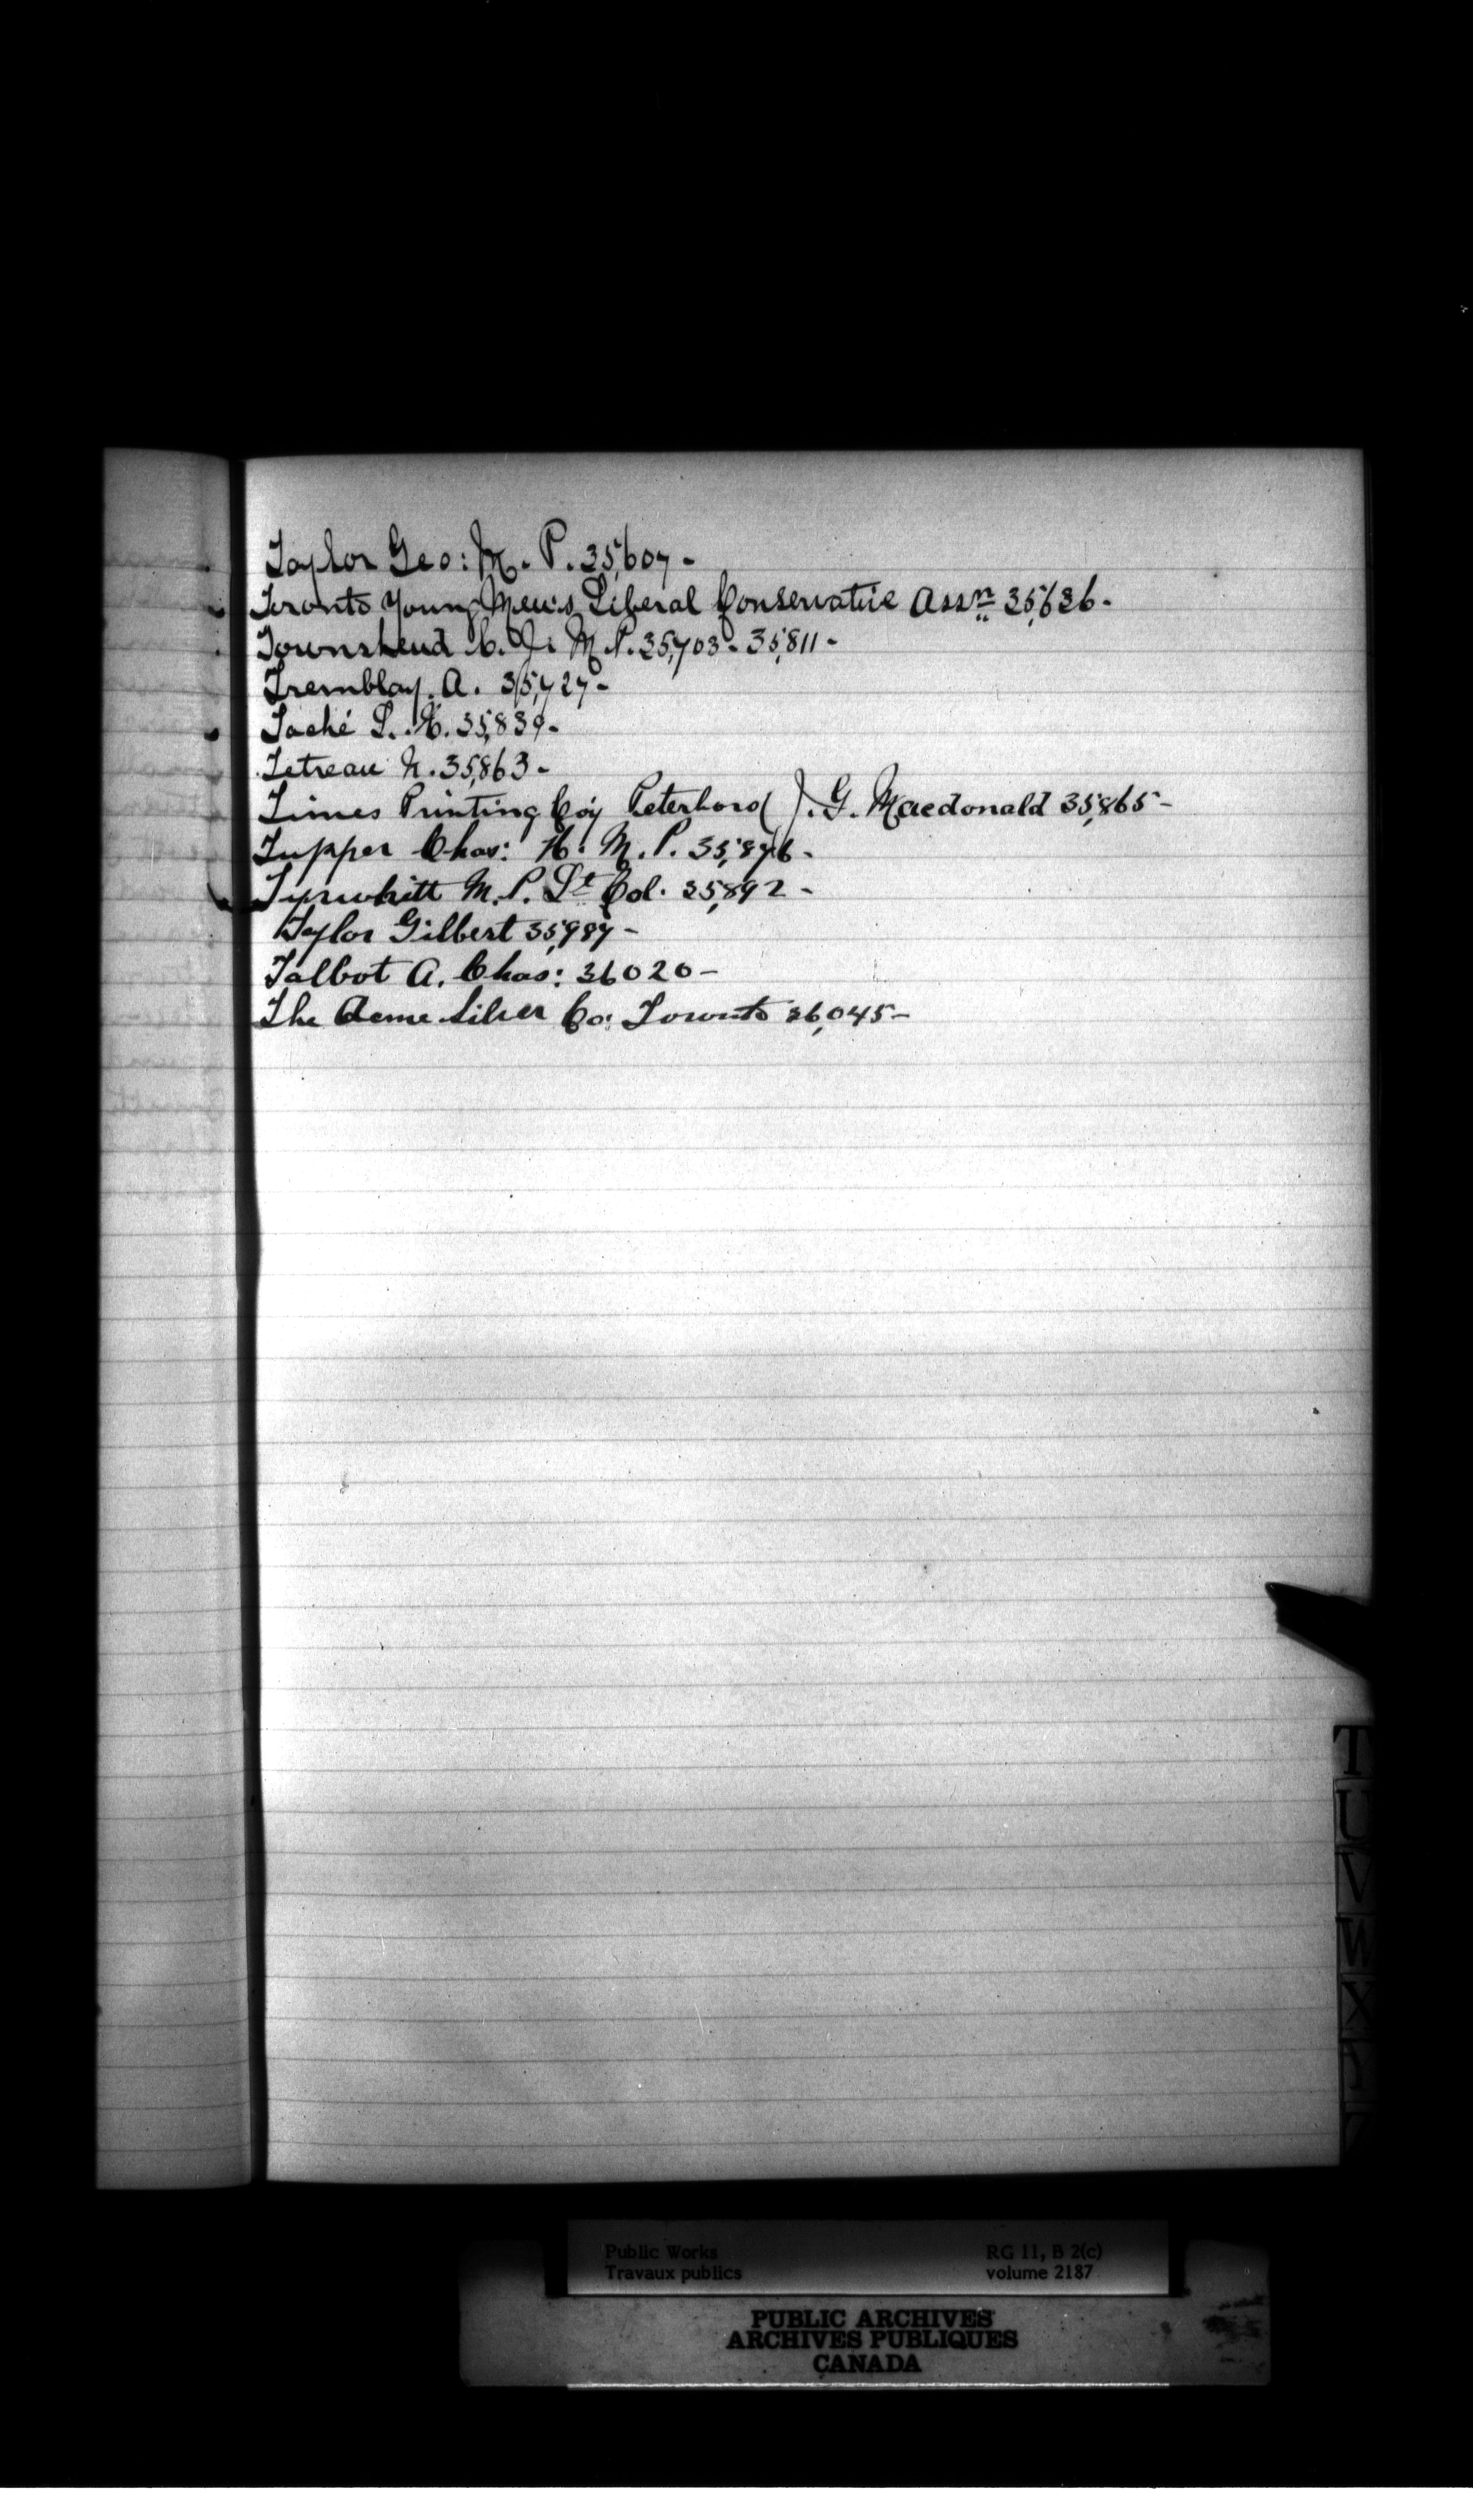 Taylor Geo: M. P. 35,607 -
Toronto Young Men's Liberal Conservative Assn 35,636 -
Townshend C. J. M. P. 35,703 - 35,811 -
Tremblay A. 35,727 -
Taché L. H. 35,839 -
Tetreau N. 35,863 -
Times Printing Coy Peterboro J. G. Macdonald 35,865 -
Tupper Chas: H. M. P. 35,876 -
Tyrwhitt M. P. Lt Col. 35,892 -
Taylor Gilbert 35,987 -
Talbot A. Chas: 36020 -
The Acme Silver Co: Toronto 36,045 -
T
U
V
W
X
Y
Public Works
Travaux publics
RG 11, B 2(c)
volume 2187
PUBLIC ARCHIVES
ARCHIVES PUBLIQUES
CANADA